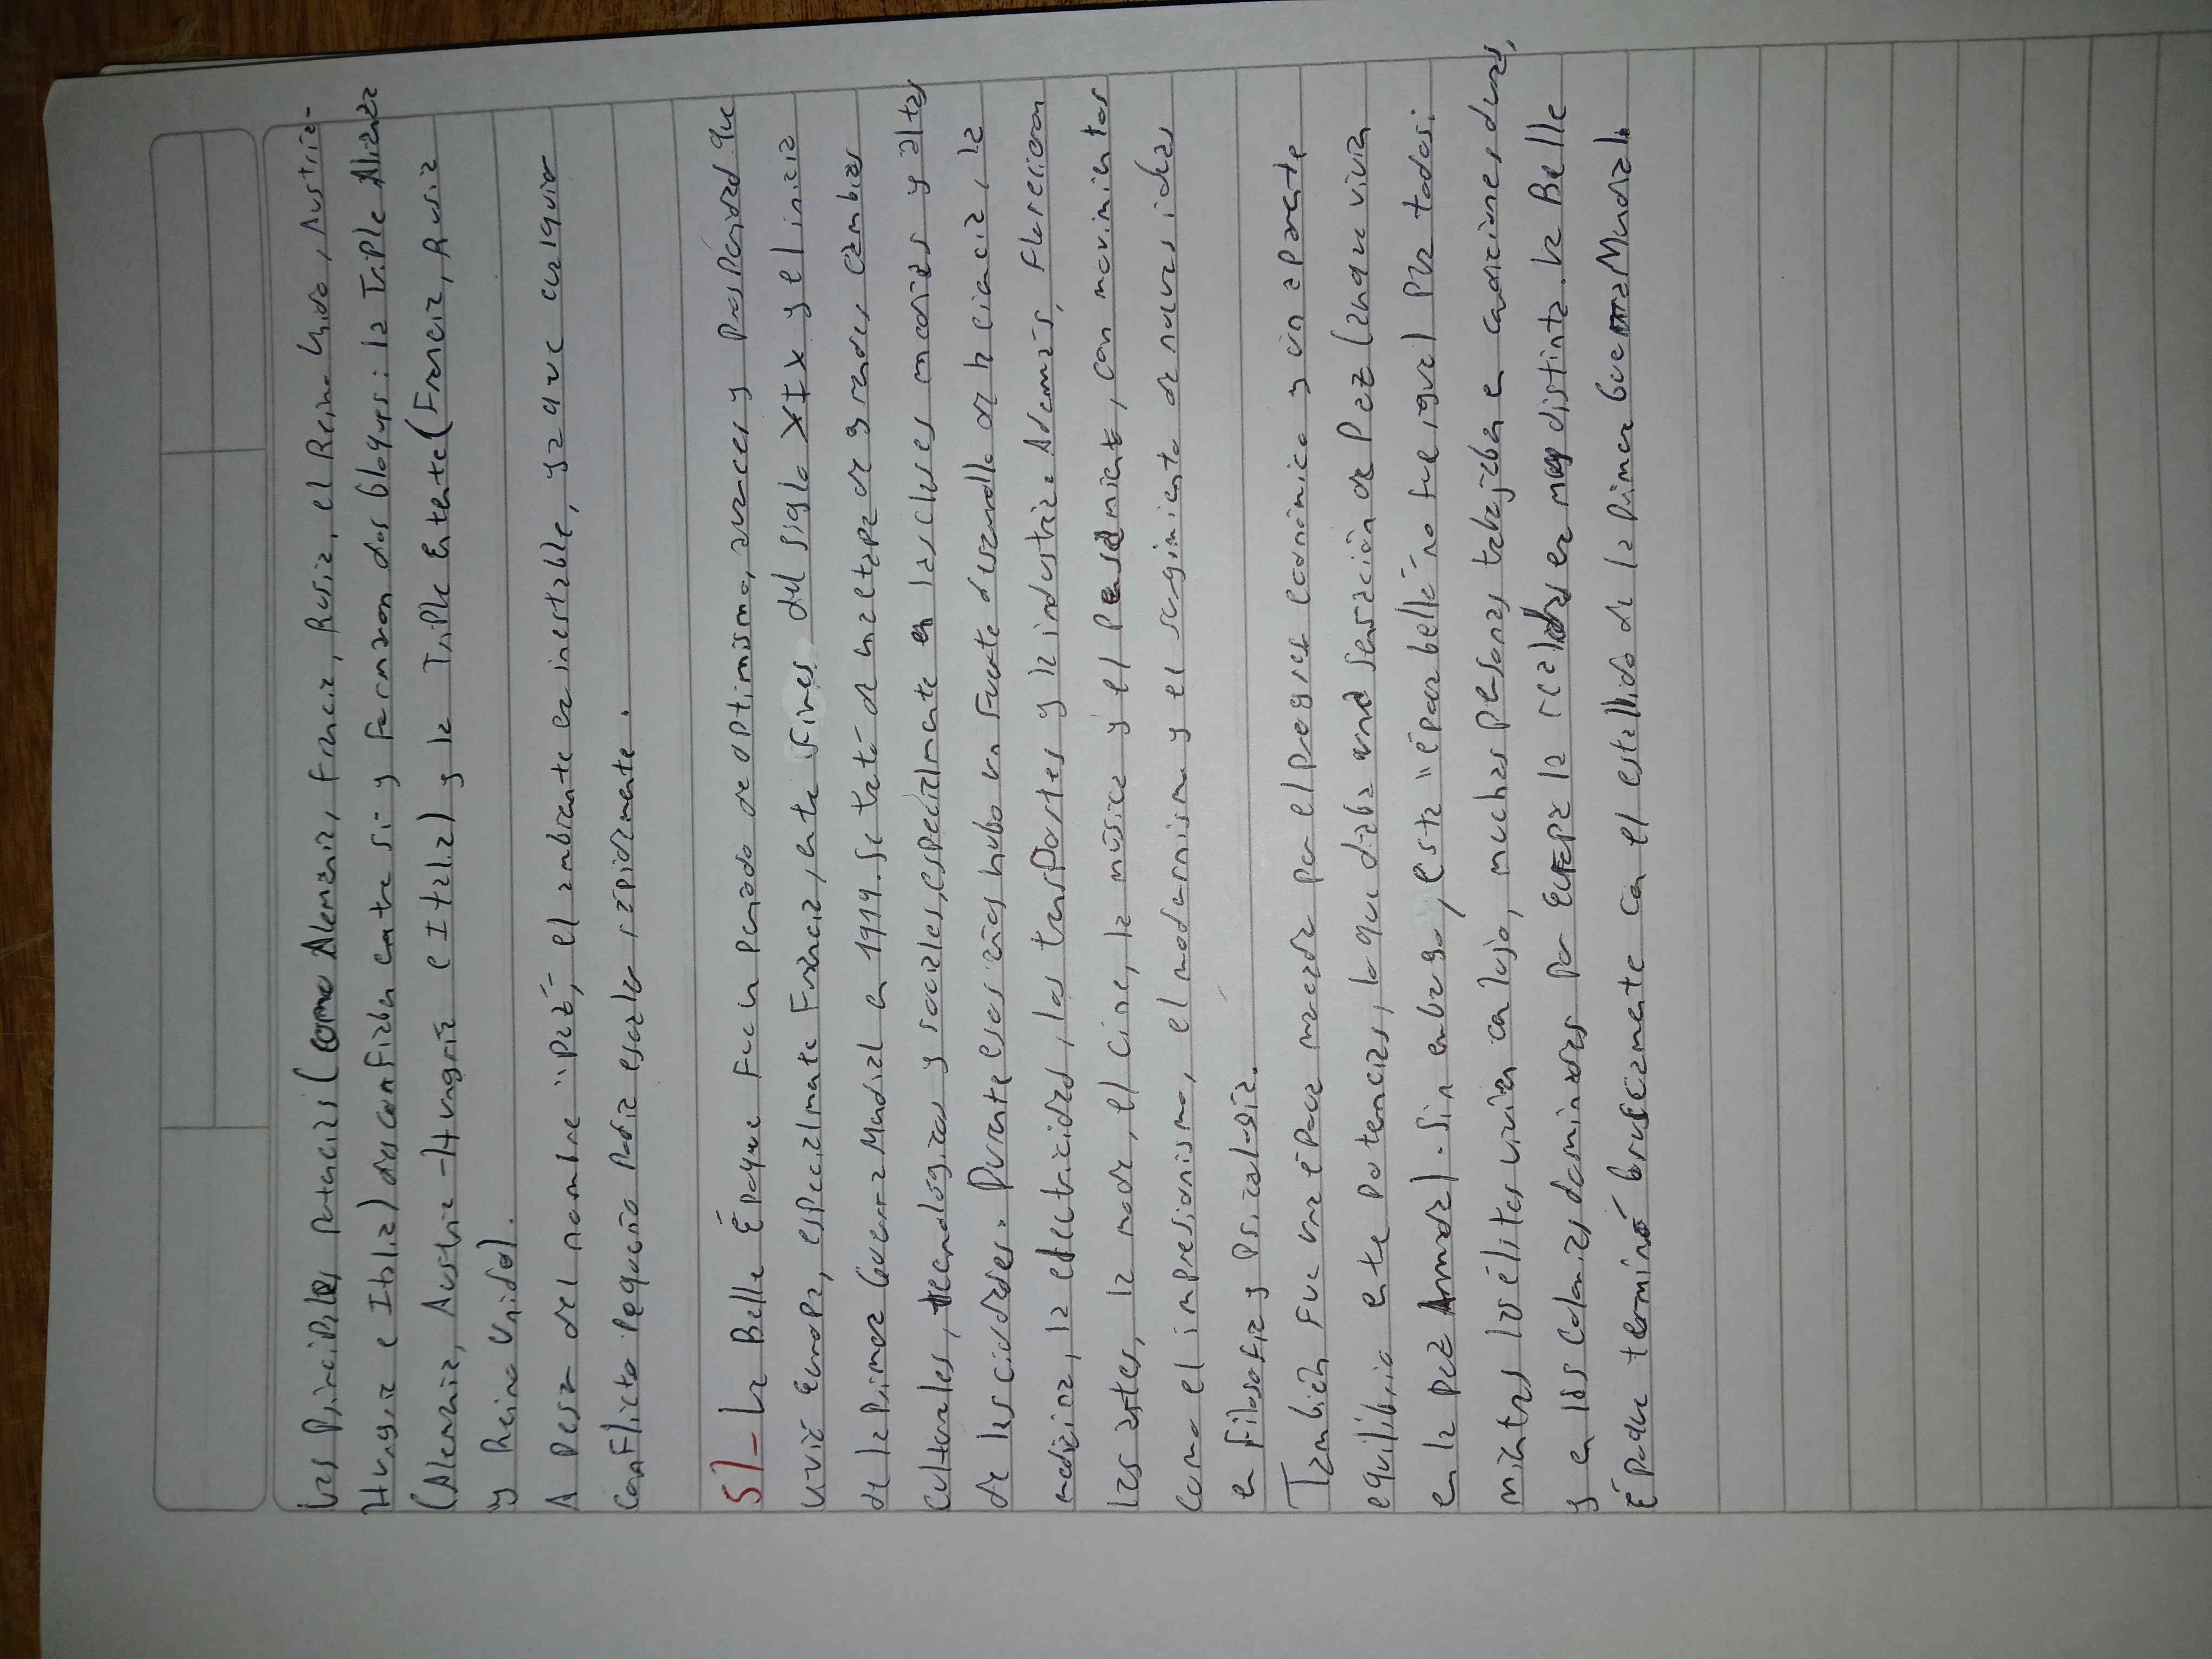 Las principales potencias (como Alemania, Francia, Rusia, el Reino Unido, Austria-
Hungría e Italia) desconfiaban entre sí y formaron dos bloques: la Triple Alianza
(Alemania, Austria-Hungría e Italia) y la Triple Entente (Francia, Rusia
y Reino Unido).
A pesar del nombre "paz", el ambiente era inestable, ya que cualquier
conflicto pequeño podía escalar rápidamente.
5)- La Belle Époque fue un periodo de optimismo, avances y prosperidad que
vivió Europa, especialmente Francia, entre fines del siglo XIX y el inicio
de la Primera Guerra Mundial en 1914. Se trató de una etapa de grandes cambios
culturales, tecnológicos y sociales, especialmente en las clases medias y altas
de las ciudades. Durante esos años hubo un fuerte desarrollo de la ciencia, la
medicina, la electricidad, los transportes y la industria. Además, florecieron
las artes, la moda, el cine, la música y el pensamiento, con movimientos
como el impresionismo, el modernismo y el surgimiento de nuevas ideas
en filosofía y psicología.
También fue una época marcada por el progreso económico y un aparente
equilibrio entre potencias, lo que daba una sensación de paz (aunque vivían
en la paz Armada). Sin embargo, esta "época bella" no fue igual para todos:
mientras las élites vivían con lujo, muchas personas trabajaban en condiciones duras,
y en las colonias dominadas por Europa la realidad era muy distinta. La Belle
Époque terminó bruscamente con el estallido de la Primera Guerra Mundial.